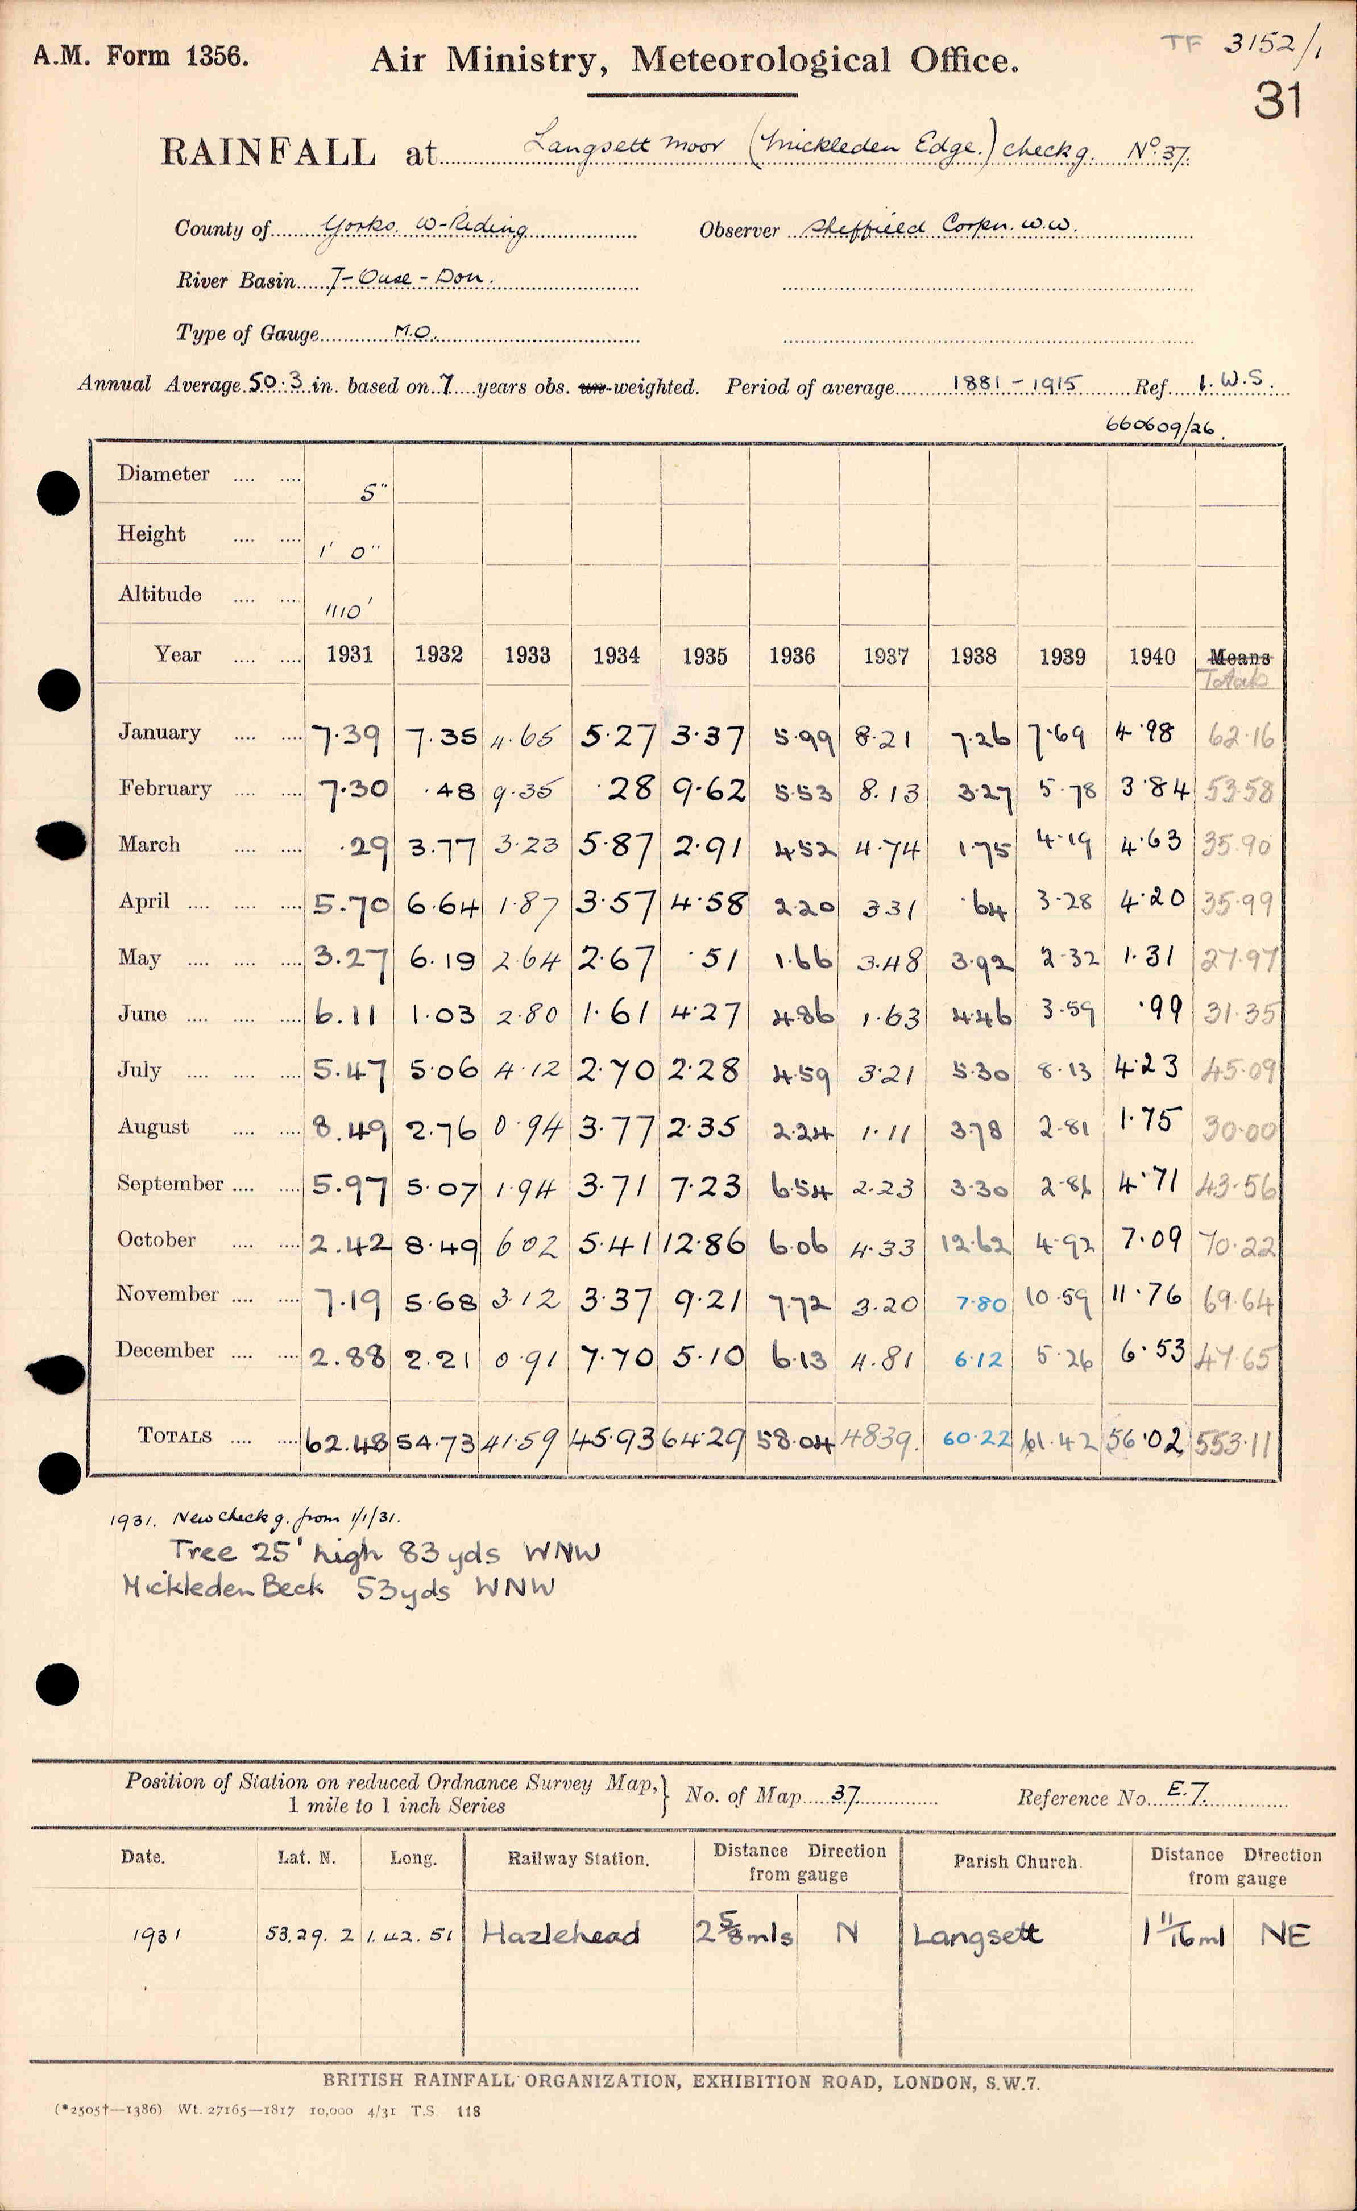 TF 3152/1
A.M. Form 1356. Air Ministry, Meteorological Office.
31
RAINFALL at Langsett Moor (Mickleden Edge.) check g. No. 37.
County of Yorks. W-Riding Observer Sheffield Corpn. W.W.
River Basin 7-Ouse-Don.
Type of Gauge M.O.
Annual Average 50.3 in. based on 7 years obs. un-weighted. Period of average 1881-1915 Ref. I.W.S.
660609/26.
Diameter .... .... 5"
Height .... .... 1' 0"
Altitude .... .... 1110'
Year .... .... 1931 1932 1933 1934 1935 1936 1937 1938 1939 1940 Means
Totals
January .... .... 7.39 7.35 4.65 5.27 3.37 5.99 8.21 7.26 7.69 4.98 62.16
February .... .... 7.30 .48 9.35 .28 9.62 5.53 8.13 3.27 5.78 3.84 53.58
March .... .... .29 3.77 3.23 5.87 2.91 4.52 4.74 1.75 4.19 4.63 35.90
April .... .... .... 5.70 6.64 1.87 3.57 4.58 2.20 3.31 .64 3.28 4.20 35.99
May .... .... .... 3.27 6.19 2.64 2.67 .51 1.66 3.48 3.92 2.32 1.31 27.97
June .... .... .... 6.11 1.03 2.80 1.61 4.27 4.86 1.63 4.46 3.59 .99 31.35
July .... .... .... 5.47 5.06 4.12 2.70 2.28 4.59 3.21 5.30 8.13 4.23 45.09
August .... .... 8.49 2.76 0.94 3.77 2.35 2.24 1.11 3.78 2.81 1.75 30.00
September .... .... 5.97 5.07 1.94 3.71 7.23 6.54 2.23 3.30 2.86 4.71 43.56
October .... .... 2.42 8.49 6.02 5.41 12.86 6.06 4.33 12.62 4.92 7.09 70.22
November .... .... 7.19 5.68 3.12 3.37 9.21 7.72 3.20 7.80 10.59 11.76 69.64
December .... .... 2.88 2.21 0.91 7.70 5.10 6.13 4.81 6.12 5.26 6.53 47.65
TOTALS .... .... 62.48 54.73 41.59 45.93 64.29 58.04 48.39. 60.22 61.42 56.02 553.11
1931. New check g. from 1/1/31.
Tree 25' high 83 yds WNW
Mickleden Beck 53 yds WNW
Position of Station on reduced Ordnance Survey Map, } No. of Map 37 Reference No. E.7.
1 mile to 1 inch Series
Date. Lat. N. Long. Railway Station. Distance from gauge Direction Parish Church. Distance from gauge Direction
1931 53.29.2 1.42.51 Hazlehead 2 5/8 mls N Langsett 1 11/16 ml NE
BRITISH RAINFALL ORGANIZATION, EXHIBITION ROAD, LONDON, S.W.7.
(*2505†—1386) Wt. 27165—1817 10,000 4/31 T.S. 118